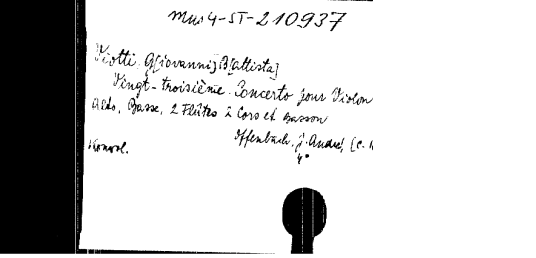 Mus 4-ST-210937
Viotti. G[iovanni] B[attista]
Vingt-troisième Concerto pour Violon
Alto, Basse, 2 Flûtes 2 Cors et Basson
Offenbach, J. André, [c.
Konvol. 4°